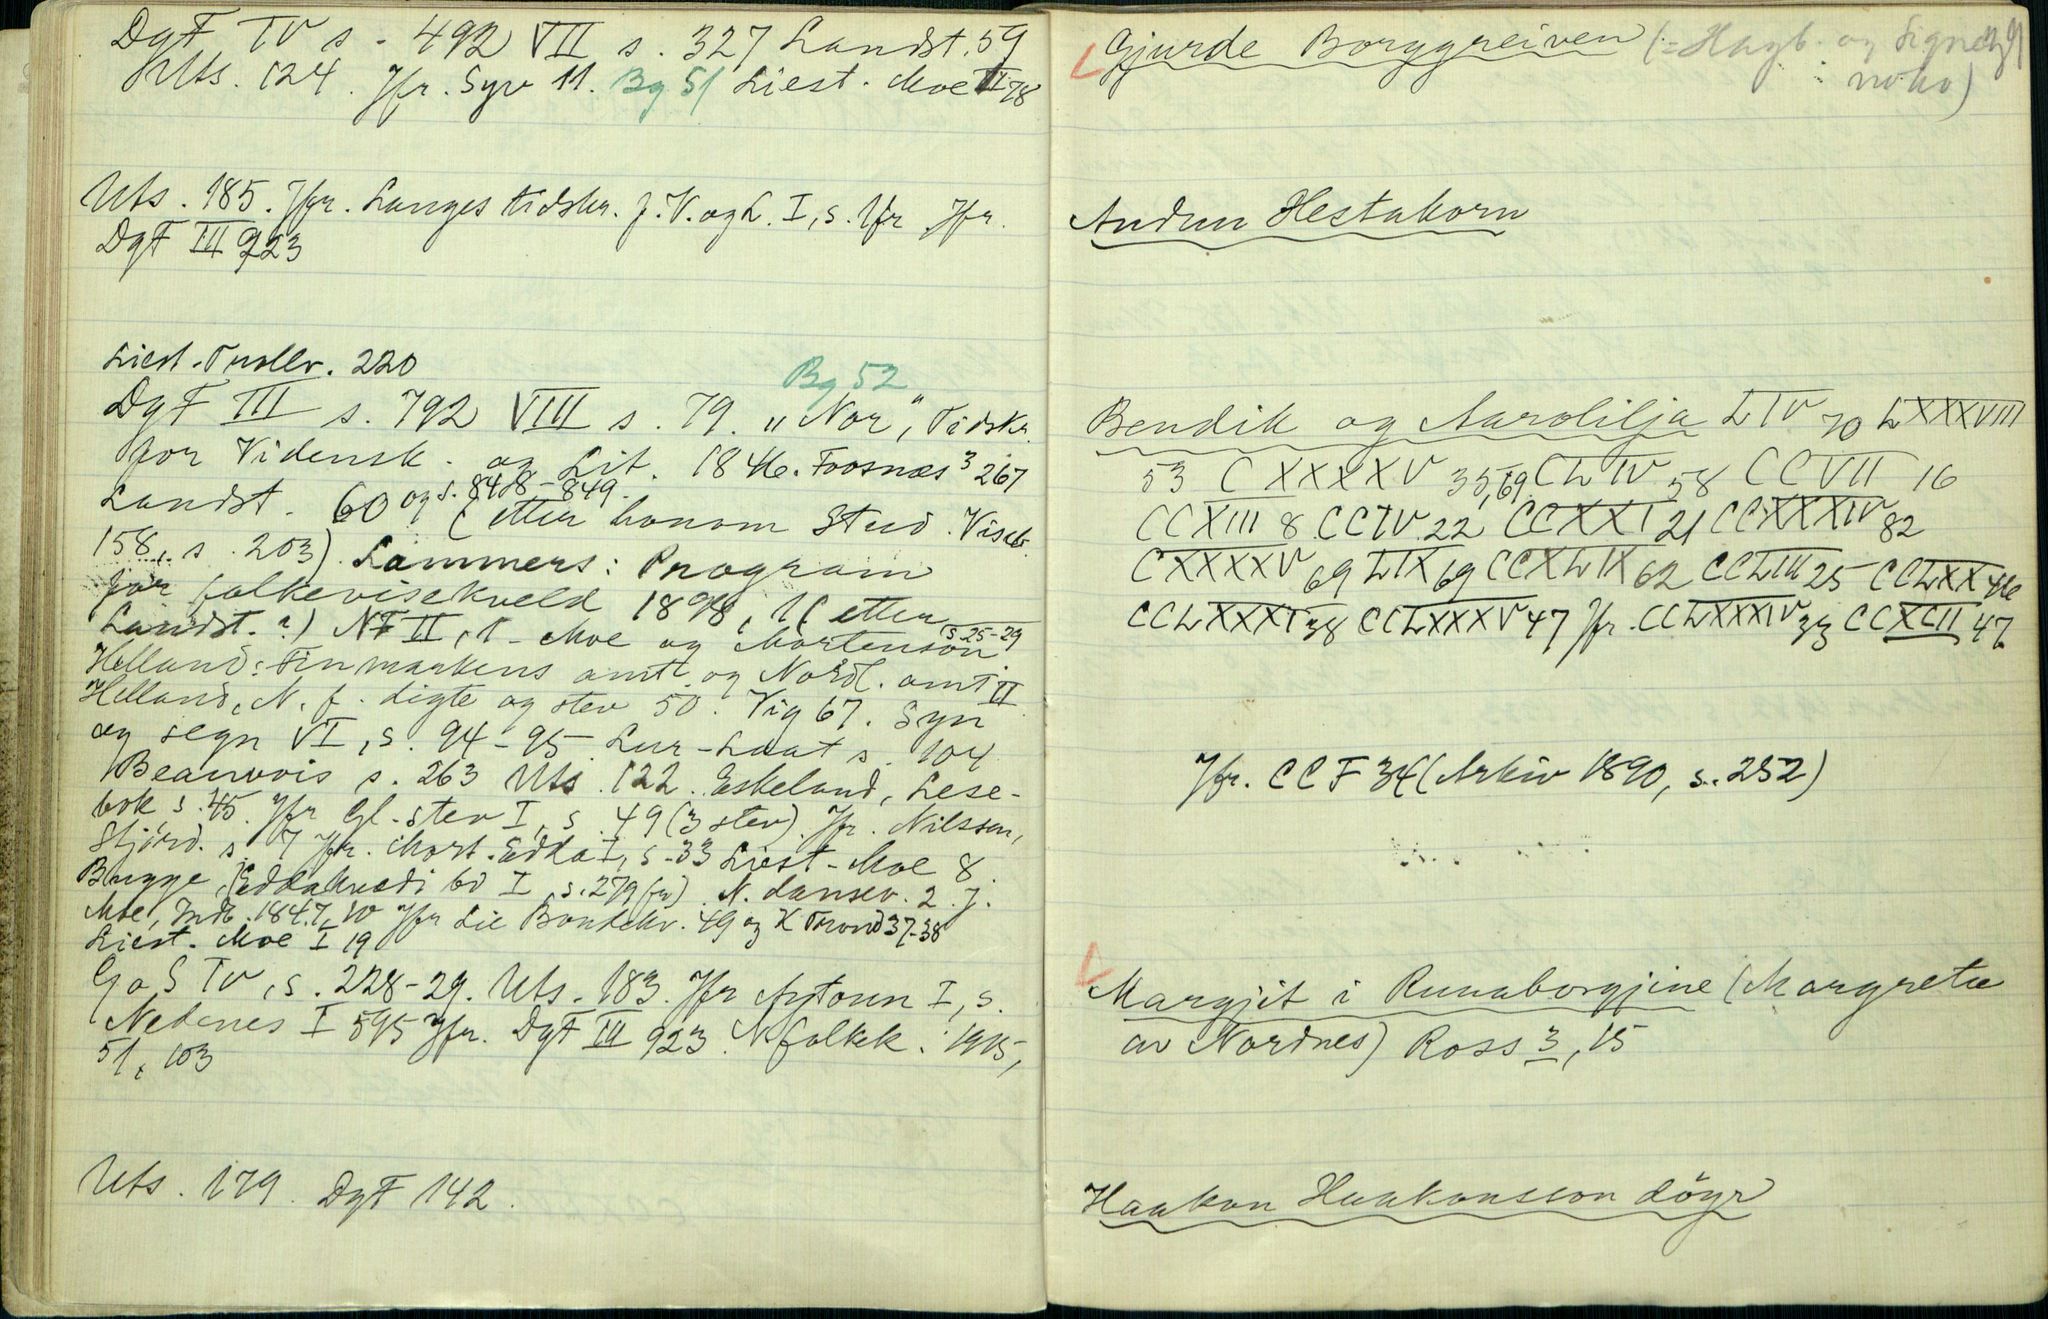 DgF IV s. 492 VII s. 327 Landst. 59
Uts. 124. Jfr. Syv 11. Bg 51 Liest. Moe II 78
Uts. 185. Jfr. Langes tidskr. f. V. og L. I, s. Jfr.
DgF III 923
Liest. 220
Bg 52
DgF III s. 792 VIII s. 79. „Nor", Tidskr.
for Vidensk. og Lit. 1846. Foosnæs³ 267
Landst. 60 og s. 848-849. (etter honom Stud. Viseb.
158, s. 203) Lammers: Program
for folkevisekveld 1898, 1 (etter
Landst.?) NF II, 1 - Moe og Mortenson s. 25-29
Helland: Finmarkens amt og Nordl. amt II
Helland, N. f. digte og stev 50. Vig 67. Syn
og segn VI, s. 94-95 Lur-Laat s. 104
Beauvois s. 263 Uts. 122. Eskeland, Lese-
bok s. 45. Jfr Gl. stev I, s. 49 (3 stev). Jfr. Nilssen,
Stjörd. s. 7 Jfr. Mort. Edda I, s. 33 Liest-Moe 8
Bugge, Eddakvædi bd I, s. 279 N. dansev. 2. J.
Moe, Indb. 1847, 10 Jfr Lie Bondekv. 49 og K Trond 37-38
Liest. Moe I 19
GoS IV, s. 228-29. Uts. 183. Jfr Aytoun I, s.
Nedenes I 595 Jfr. DgF III 923. N folkek. 1915,
51, 103
Uts. 179. DgF 142.
Gjurde Borggreiven (= Hagb. og Signe
noko)
Andrun Hestakorn
Bendik og Aarolilja LIV 70 LXXXVIII
53 CXXXXV 35, 69 CLIV 58 CCVII 16
CCXIII 8 CCIV 22 CCXXI 21 CCXXXIV 82
CXXXXV 69 LIX 69 CCXLIX 62 CCLIII 25 CCLXX 46
CCLXXXI 38 CCLXXXV 47 Jfr. CCLXXXIV 33 CCXCII 47
Jfr. CCF 34 (Arkiv 1890, s. 252)
Margjit i Runaborgjine (Margreta
av Nordnes) Ross 3, 15
Haakon Haakonsson döyr